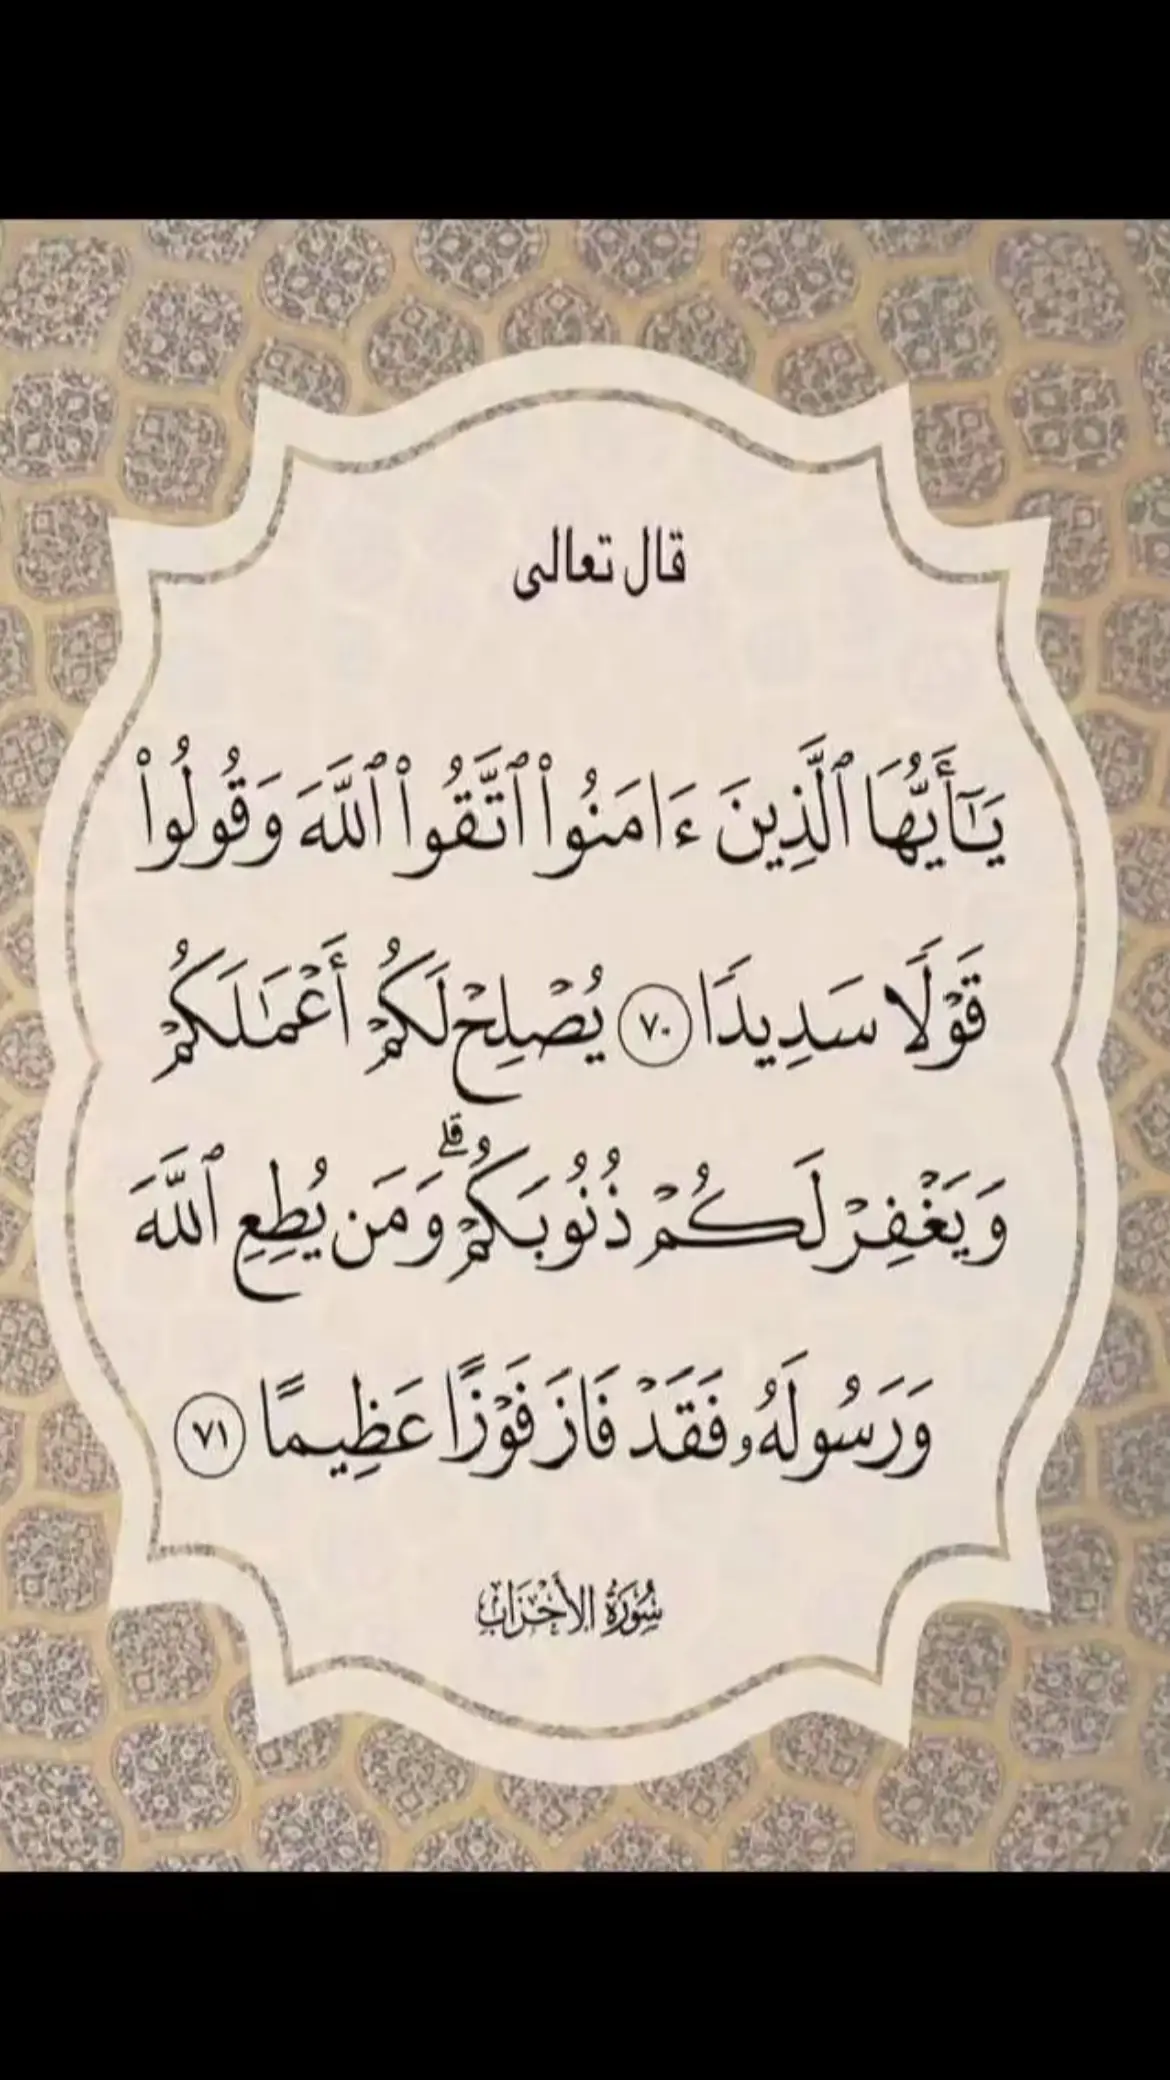 قال تعالى
يَـٰٓأَيُّهَا ٱلَّذِينَ ءَامَنُوا۟ ٱتَّقُوا۟ ٱللَّهَ وَقُولُوا۟
قَوْلًا سَدِيدًا ٧٠ يُصْلِحْ لَكُمْ أَعْمَـٰلَكُمْ
وَيَغْفِرْ لَكُمْ ذُنُوبَكُمْ ۗ وَمَن يُطِعِ ٱللَّهَ
وَرَسُولَهُۥ فَقَدْ فَازَ فَوْزًا عَظِيمًا ٧١
سُورَةُ الأَحْزَاب